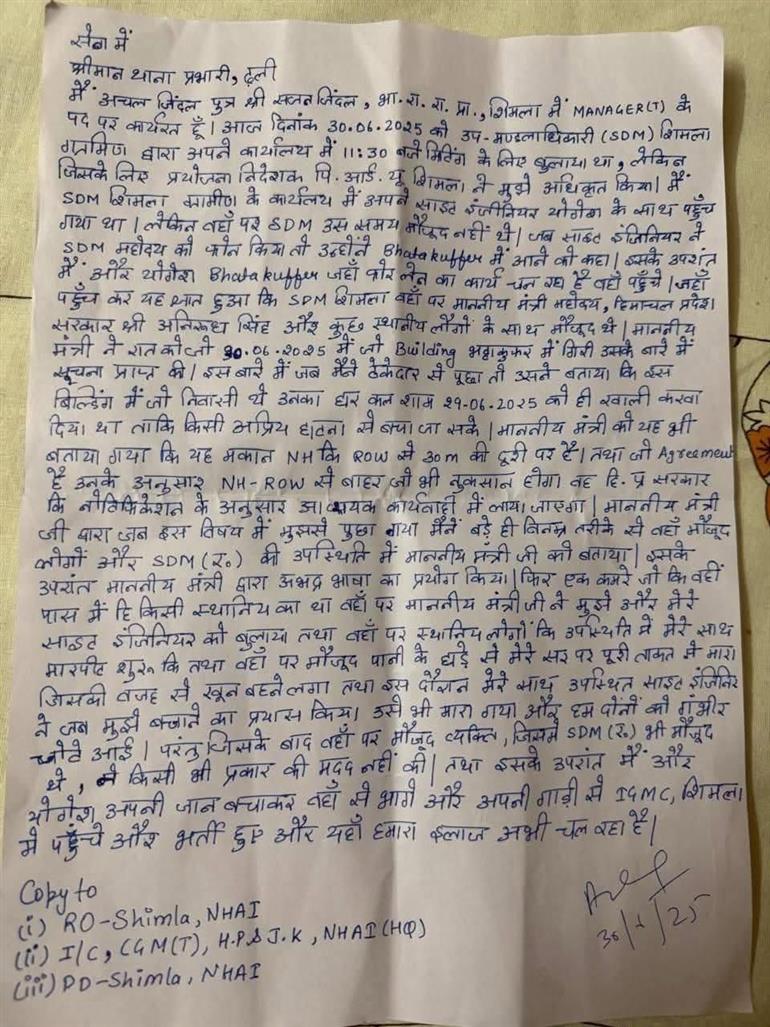 सेवा में
श्रीमान थाना प्रभारी, ढली
मैं अचल जिंदल पुत्र श्री सजन जिंदल, भा. रा. रा. प्रा., शिमला में MANAGER(T) के
पद पर कार्यरत हूँ। आज दिनांक 30.06.2025 को उप-मण्डलाधिकारी (SDM) शिमला
ग्रामिण द्वारा अपने कार्यालय में 11:30 बजे मिटिंग के लिए बुलाया था, लेकिन
जिसके लिए प्रयोजना निदेशक पि. आई. यू शिमला ने मुझे अधिकृत किया। मैं
SDM शिमला ग्रामीण के कार्यलय में अपने साइट इंजीनियर योगेश के साथ पहुँच
गया था। लेकिन वहाँ पर SDM उस समय मौजूद नहीं थे। जब साइट इंजिनियर ने
SDM महोदय को फोन किया तो उन्होंने Bhatakuffer में आने को कहा। इसके उपरांत
मैं और योगेश Bhatakuffer जहाँ फोर लेन का कार्य चल रहा है वहाँ पहुँचे। जहाँ
पहुँच कर यह ज्ञात हुआ कि SDM शिमला वहाँ पर माननीय मंत्री महोदय, हिमाचल प्रदेश
सरकार श्री अनिरूध सिंह और कुछ स्थानीय लोगों के साथ मौजूद थे। माननीय
मंत्री ने रात को जो 30.06.2025 में जो Building भट्टाकुफर में गिरी उसके बारे में
सूचना प्राप्त की। इस बारे में जब मैंने ठेकेदार से पूछा तो उसने बताया कि इस
बिल्डिंग में जो निवासी थे उनका घर कल शाम 29-06-2025 को ही खाली करवा
दिया था ताकि किसी अप्रिय घटना से बचा जा सके। माननीय मंत्री को यह भी
बताया गया कि यह मकान NH कि ROW से 30m की दूरी पर है। तथा जो Agreement
है उनके अनुसार NH-ROW से बाहर जो भी नुकसान होगा वह हि. प्र सरकार
कि नोटिफिकेशन के अनुसार आवश्यक कार्यवाही में लाया जाएगा। माननीय मंत्री
जी द्वारा जब इस विषय में मुझसे पुछा गया मैंने बड़े ही विनम्र तरीके से वहाँ मौजूद
लोगों और SDM (R.) की उपस्थिति में माननीय मंत्री जी को बताया। इसके
उपरांत माननीय मंत्री द्वारा अभद्र भाषा का प्रयोग किया। फिर एक कमरे जो कि वहीं
पास में हि किसी स्थानिय का था वहाँ पर माननीय मंत्री जी ने मुझे और मेरे
साइट इंजिनियर को बुलाया तथा वहाँ पर स्थानिय लोगों कि उपस्थिति में मेरे साथ
मारपीट शुरू कि तथा वहाँ पर मौजूद पानी के घड़े से मेरे सर पर पूरी ताकत से मारा
जिसकी वजह से खून बहने लगा तथा इस दौरान मेरे साथ उपस्थित साइट इंजिनिर
ने जब मुझे बचाने का प्रयास किया। उसे भी मारा गया और हम दोनों को गंभीर
चोटे आई। परंतु जिसके बाद वहाँ पर मौजूद व्यक्ति, जिसमें SDM (R.) भी मौजूद
थे, ने किसी भी प्रकार की मदद नहीं की। तथा इसके उपरांत मैं और
योगेश अपनी जान बचाकर वहाँ से भागे और अपनी गाड़ी से IGMC, शिमला
में पहुँचे और भर्ती हुए और यहाँ हमारा इलाज अभी चल रहा है।
Copy to
(i) RO-Shimla, NHAI
(ii) I/C, CGM(T), H.P & J.K, NHAI (HQ)
(iii) PD-Shimla, NHAI